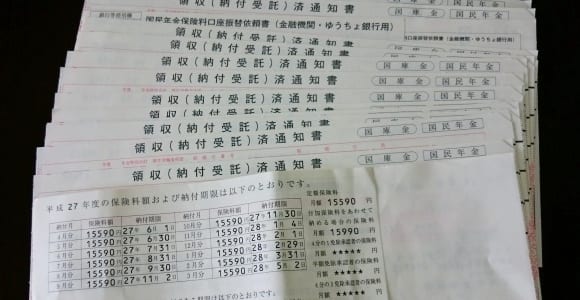 領収(納付受託)済通知書 国庫金 国民年金
国民年金保険料口座振替依頼書(金融機関・ゆうちょ銀行用)
領収(納付受託)済通知書
領収(納付受託)済通知書 国庫金 国民年金
領収(納付受託)済通知書 国庫金 国民年金
領収(納付受託)済通知書 国庫金 国民年金
領収(納付受託)済通知書
領収(納付受託)済通知書 国庫金 国民年金
領収(納付受託)済通知書 国庫金 国民年金
平成27年度の保険料額および納付期限は以下のとおりです。
納付月 保険料額 納付期限 納付月 保険料額 納付期限
4月分 15590円 27年 6月 1日 10月分 15590円 27年11月30日
5月分 15590円 27年 6月30日 11月分 15590円 28年 1月 4日
6月分 15590円 27年 7月31日 12月分 15590円 28年 2月 1日
7月分 15590円 27年 8月31日 1月分 15590円 28年 2月29日
8月分 15590円 27年 9月30日 2月分 15590円 28年 3月31日
9月分 15590円 27年11月 2日 3月分 15590円 28年 5月 2日
定額保険料
月額 15590 円
付加保険料をあわせて
納める場合の保険料
月額 15990 円
4分の1免除承認者の保険料
月額 ★★★★★ 円
半額免除承認者の保険料
月額 ★★★★★ 円
4分の3免除承認者の保険料
月額 ★★★★★ 円